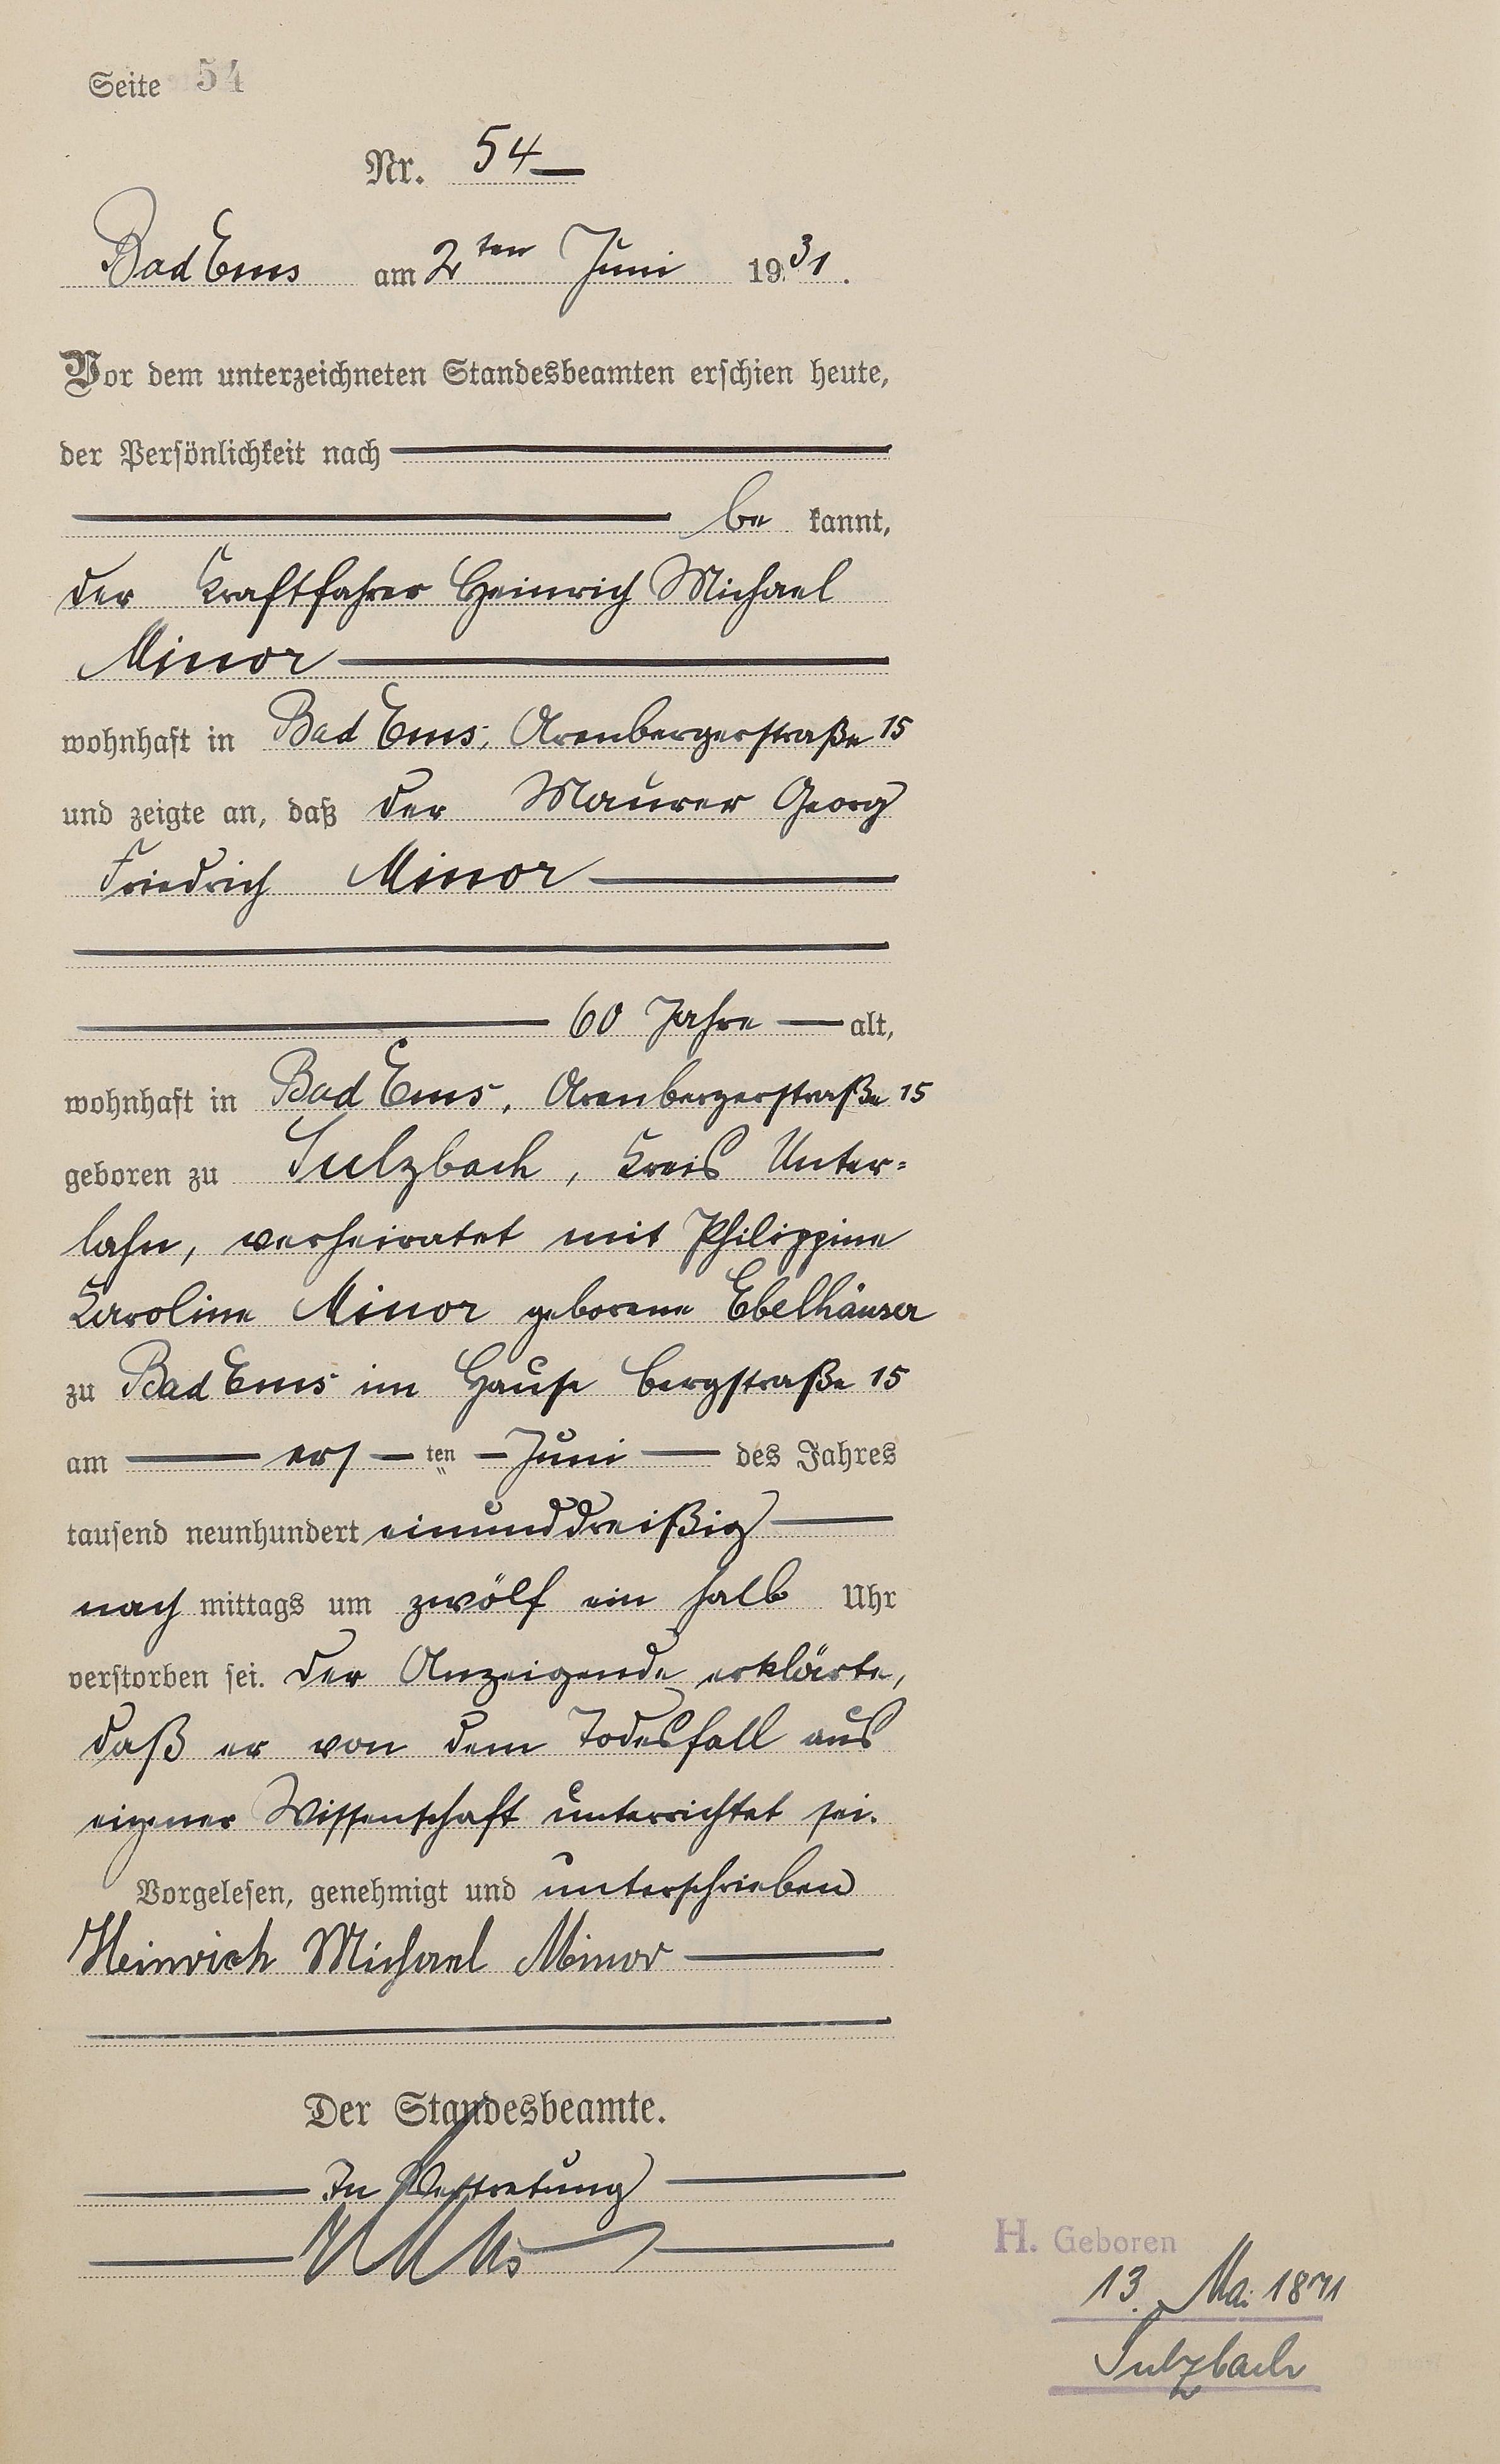 Seite 54
Nr. 54
Bad Ems am 2ten Juni 1931.
Vor dem unterzeichneten Standesbeamten erschien heute,
der Persönlichkeit nach
be kannt,
der Kraftfahrer Heinrich Michael
Minor
wohnhaft in Bad Ems, Arenbergerstraße 15
und zeigte an, daß der Maurer Georg
Friedrich Minor
60 Jahre alt,
wohnhaft in Bad Ems, Arenbergerstraße 15
geboren zu Sulzbach, Kreis Unter=
lahn, verheiratet mit Philippine
Karoline Minor geborene Ebelhäuser
zu Bad Ems im Hause Bergstraße 15
am ersten Juni des Jahres
tausend neunhundert einunddreißig
nach mittags um zwölf ein halb Uhr
verstorben sei. Der Anzeigende erklärte,
daß er von dem Todesfall aus
eigener Wissenschaft unterrichtet sei.
Vorgelesen, genehmigt und unterschrieben
Heinrich Michael Minor
Der Standesbeamte.
In Vertretung
H. Geboren
13. Mai 1871
Sulzbach